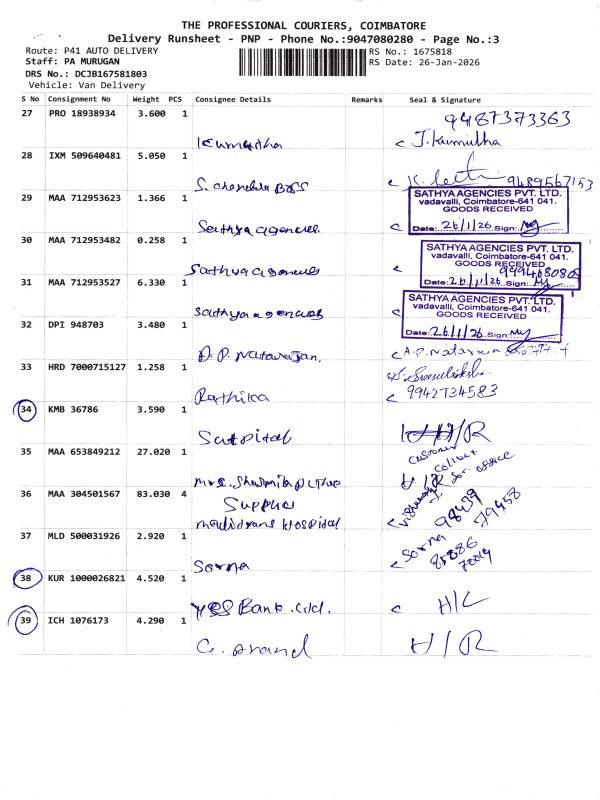 THE PROFESSIONAL COURIERS, COIMBATORE
Delivery Runsheet - PNP - Phone No.:9047080280 - Page No.:3
Route: P41 AUTO DELIVERY
RS No.: 1675818
Staff: PA MURUGAN
RS Date: 26-Jan-2026
DRS No.: DCJB167581803
Vehicle: Van Delivery
S No Consignment No Weight PCS Consignee Details Remarks Seal & Signature
27 PRO 18938934 3.600 1
9487373363
Kumutha J. Kumutha
28 IXM 509640481 5.050 1
S. chandra Boss 9489567153
29 MAA 712953623 1.366 1
SATHYA AGENCIES PVT. LTD.
vadavalli, Coimbatore-641 041.
GOODS RECEIVED
Sathya agencies Date: 26/1/26 Sign:
30 MAA 712953482 0.258 1
SATHYA AGENCIES PVT. LTD.
vadavalli, Coimbatore-641 041.
GOODS RECEIVED
Sathya agencies
Date: 26/1/26 Sign:
31 MAA 712953527 6.330 1
SATHYA AGENCIES PVT. LTD.
vadavalli, Coimbatore-641 041.
GOODS RECEIVED
Sathya agencies
Date: 26/1/26 Sign:
32 DPI 948703 3.480 1
A. P. Natarajan. A.P. Natarajan
33 HRD 7000715127 1.258 1
Rathika 9942734583
34 KMB 36786 3.590 1
H/R
35 MAA 653849212 27.020 1
customer
collect
office
Mrs. H/R
36 MAA 304501567 83.030 4
98439
79458
Hospital
37 MLD 500031926 2.920 1
Sorna
Sorna
38 KUR 1000026821 4.520 1
YES Bank Ltd. H/C
39 ICH 1076173 4.290 1
G. Anand H/R